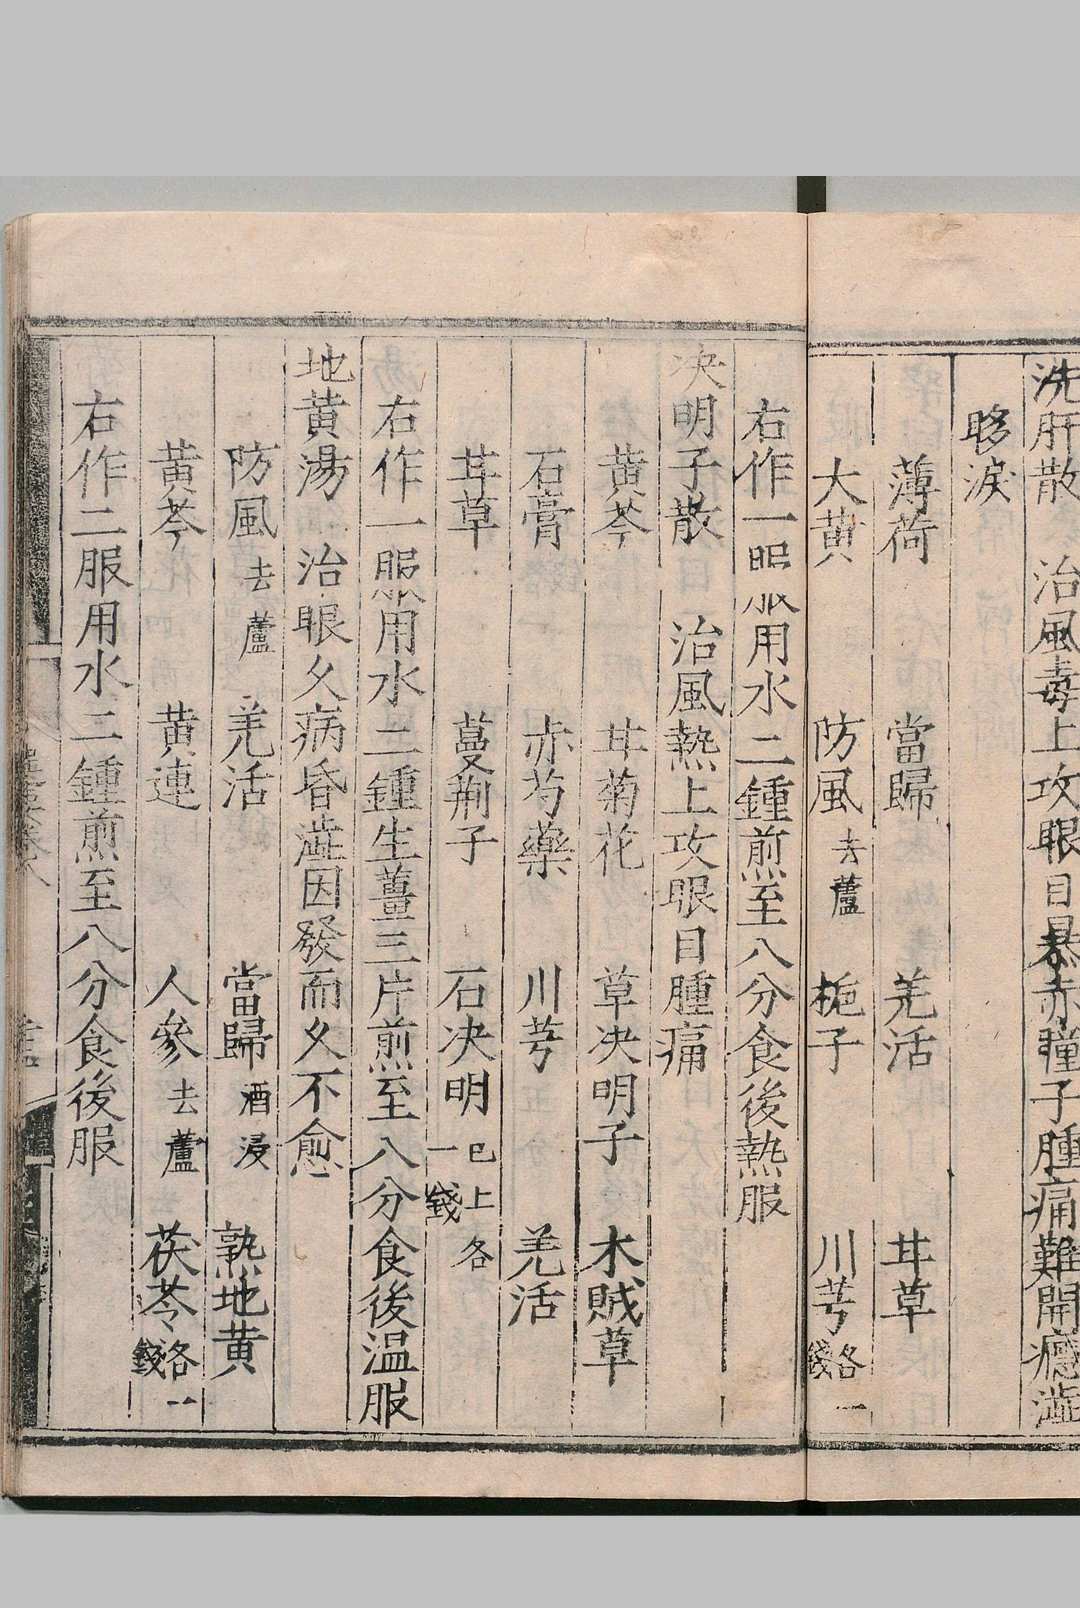 洗肝散 治風毒上攻眼目暴赤瞳子腫痛難開癮澁
眵淚
薄荷 當歸 羌活 甘草
大黄 防風去蘆 梔子 川芎各一錢
右作一服用水二鍾煎至八分食後熱服
决明子散 治風熱上攻眼目腫痛
黄芩 甘菊花 草决明子 木賊草
石膏 赤芍藥 川芎 羌活
甘草 蔓荆子 石决明已上各一錢
右作一服用水二鍾生薑三片煎至八分食後温服
地黄湯 治眼久病昏澁因發而久不愈
防風去蘆 羌活 當歸酒浸 熟地黄
黄芩 黄連 人參去蘆 茯苓各一錢
右作二服用水二鍾煎至八分食後服